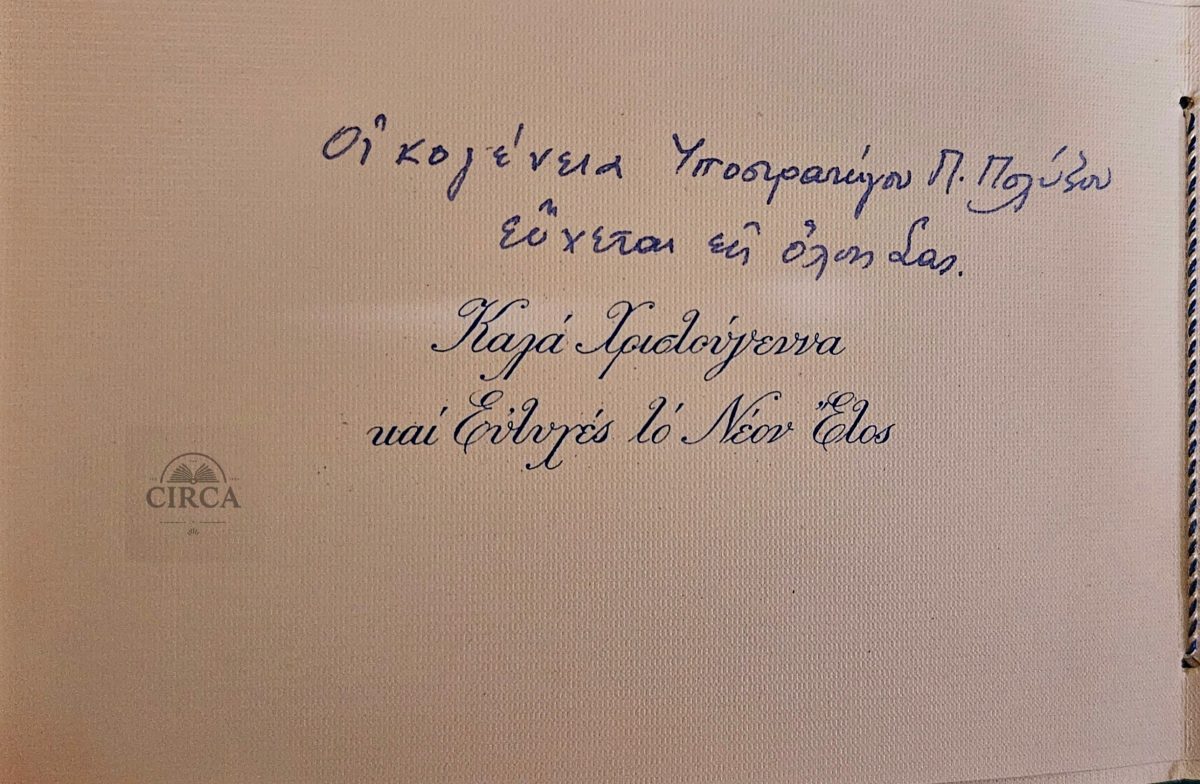 Οἰκογένεια Ὑποστρατήγου Π. Πολύζου
εὔχεται εἰς ὅλους σας.
Καλά Χριστούγεννα
καί Εὐτυχές τό Νέον Ἔτος
CIRCA